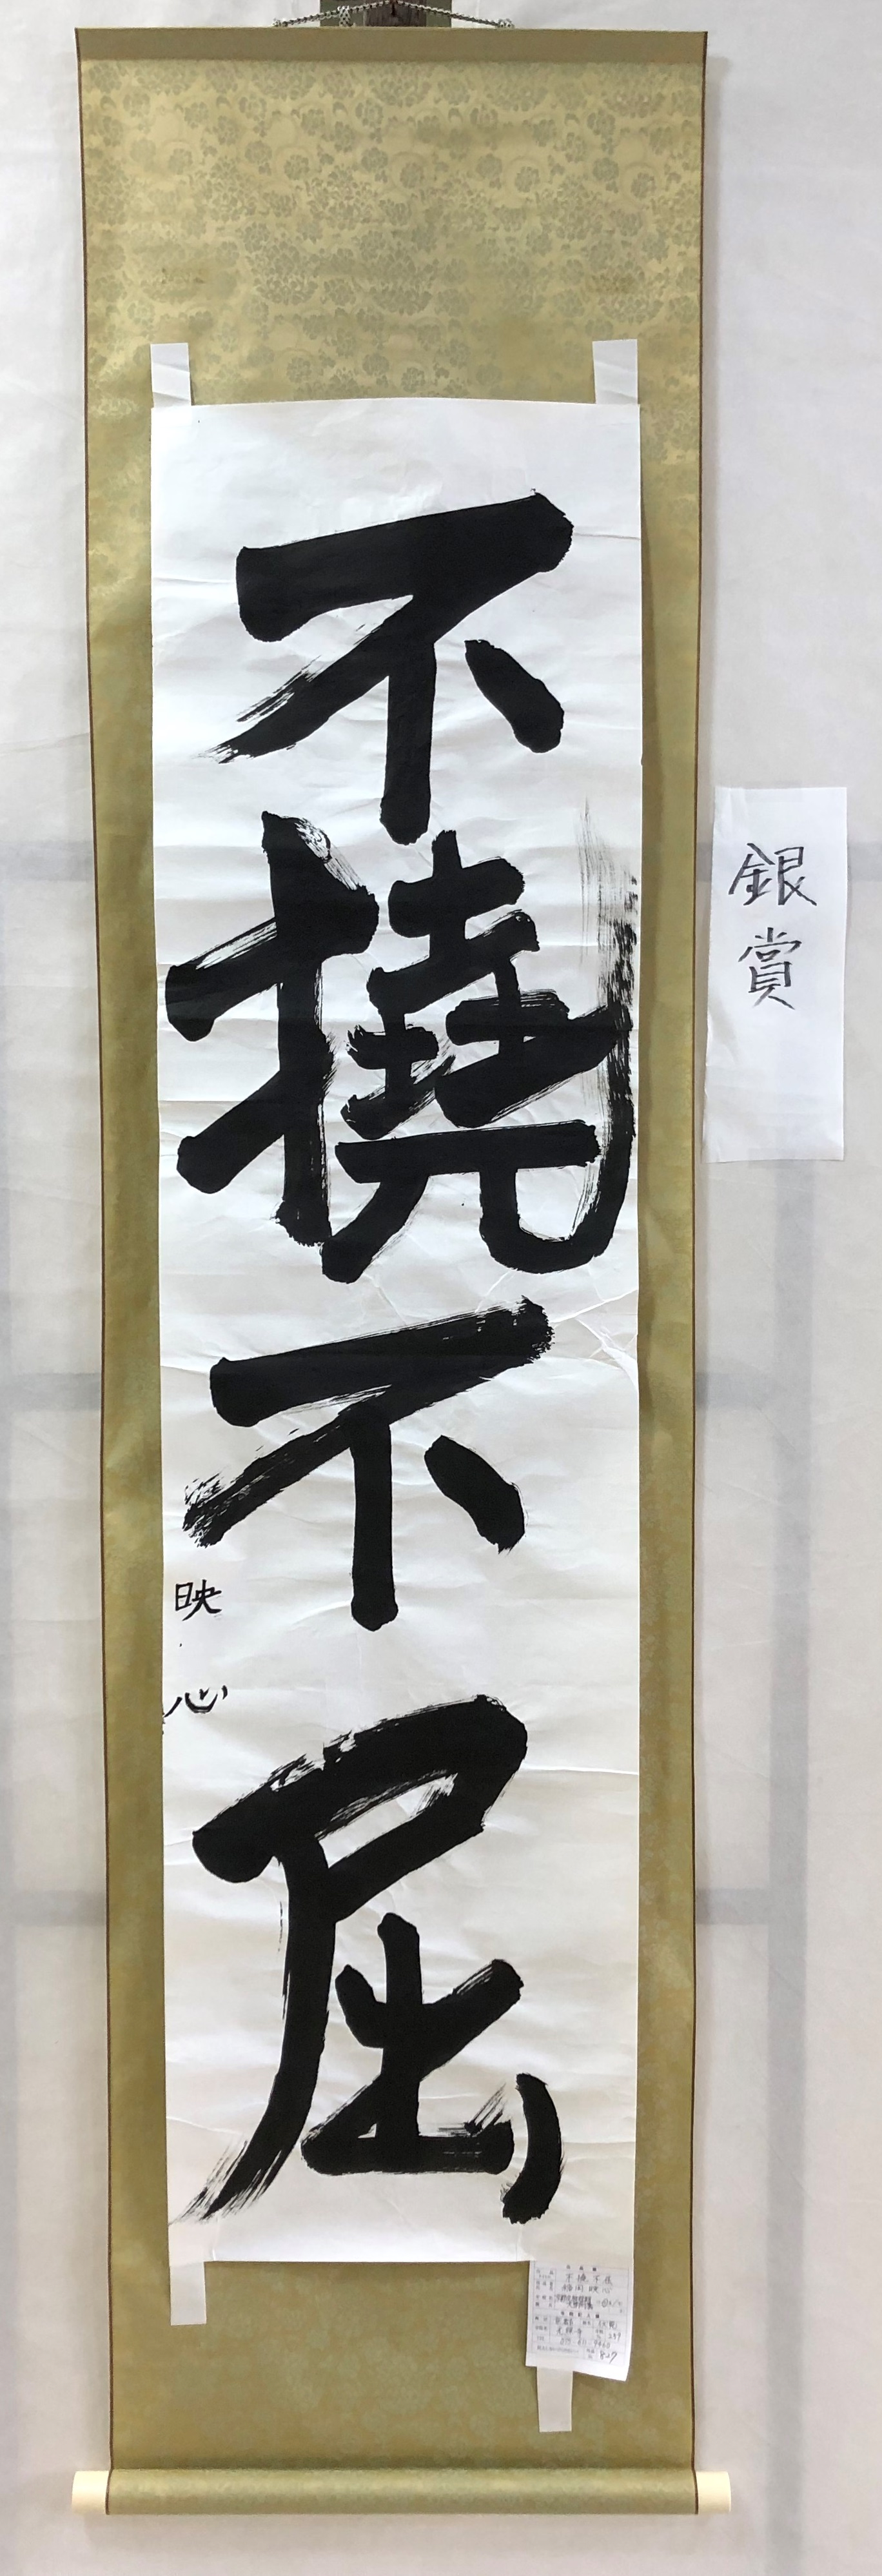 不撓不屈
映心
銀賞
不撓不屈